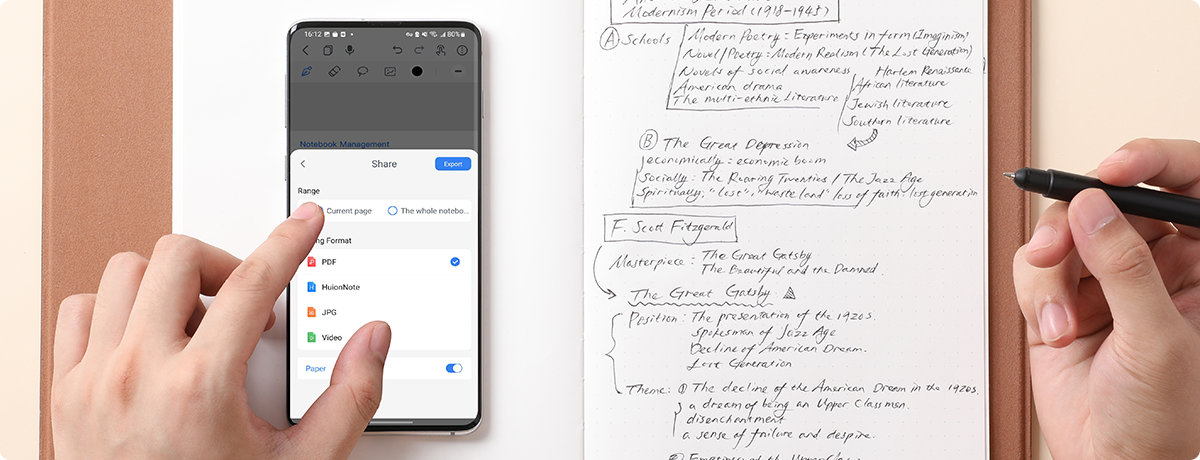 16:12
80%
Notebook Management
Share
Export
Range
Current page
The whole notebo...
ng Format
PDF
HuionNote
JPG
Video
Paper
Modernism Period (1918-1945)
A Schools
Modern Poetry : Experiments in form (Imaginism)
Novel / Poetry : Modern Realism (The Lost Generation)
Novels of social awareness
Harlem Renaissance
American drama
African literature
The multi-ethnic Literature
Jewish literature
Southern literature
B The Great Depression
economically : economic boom
Socially : The Roaring Twenties / The Jazz Age
Spiritually : "lost", "Waste land" loss of faith. lost generation
F. Scott Fitzgerald
Masterpiece : The Great Gatsby
The Beautiful and the Damned.
The Great Gatsby
Position : The presentation of the 1920s.
Spokesman of Jazz Age
Decline of American Dream.
Lost Generation
Theme : ① The decline of the American Dream in the 1920s.
a dream of being an Upper Classman.
disenchantment
a sense of failure and despire.